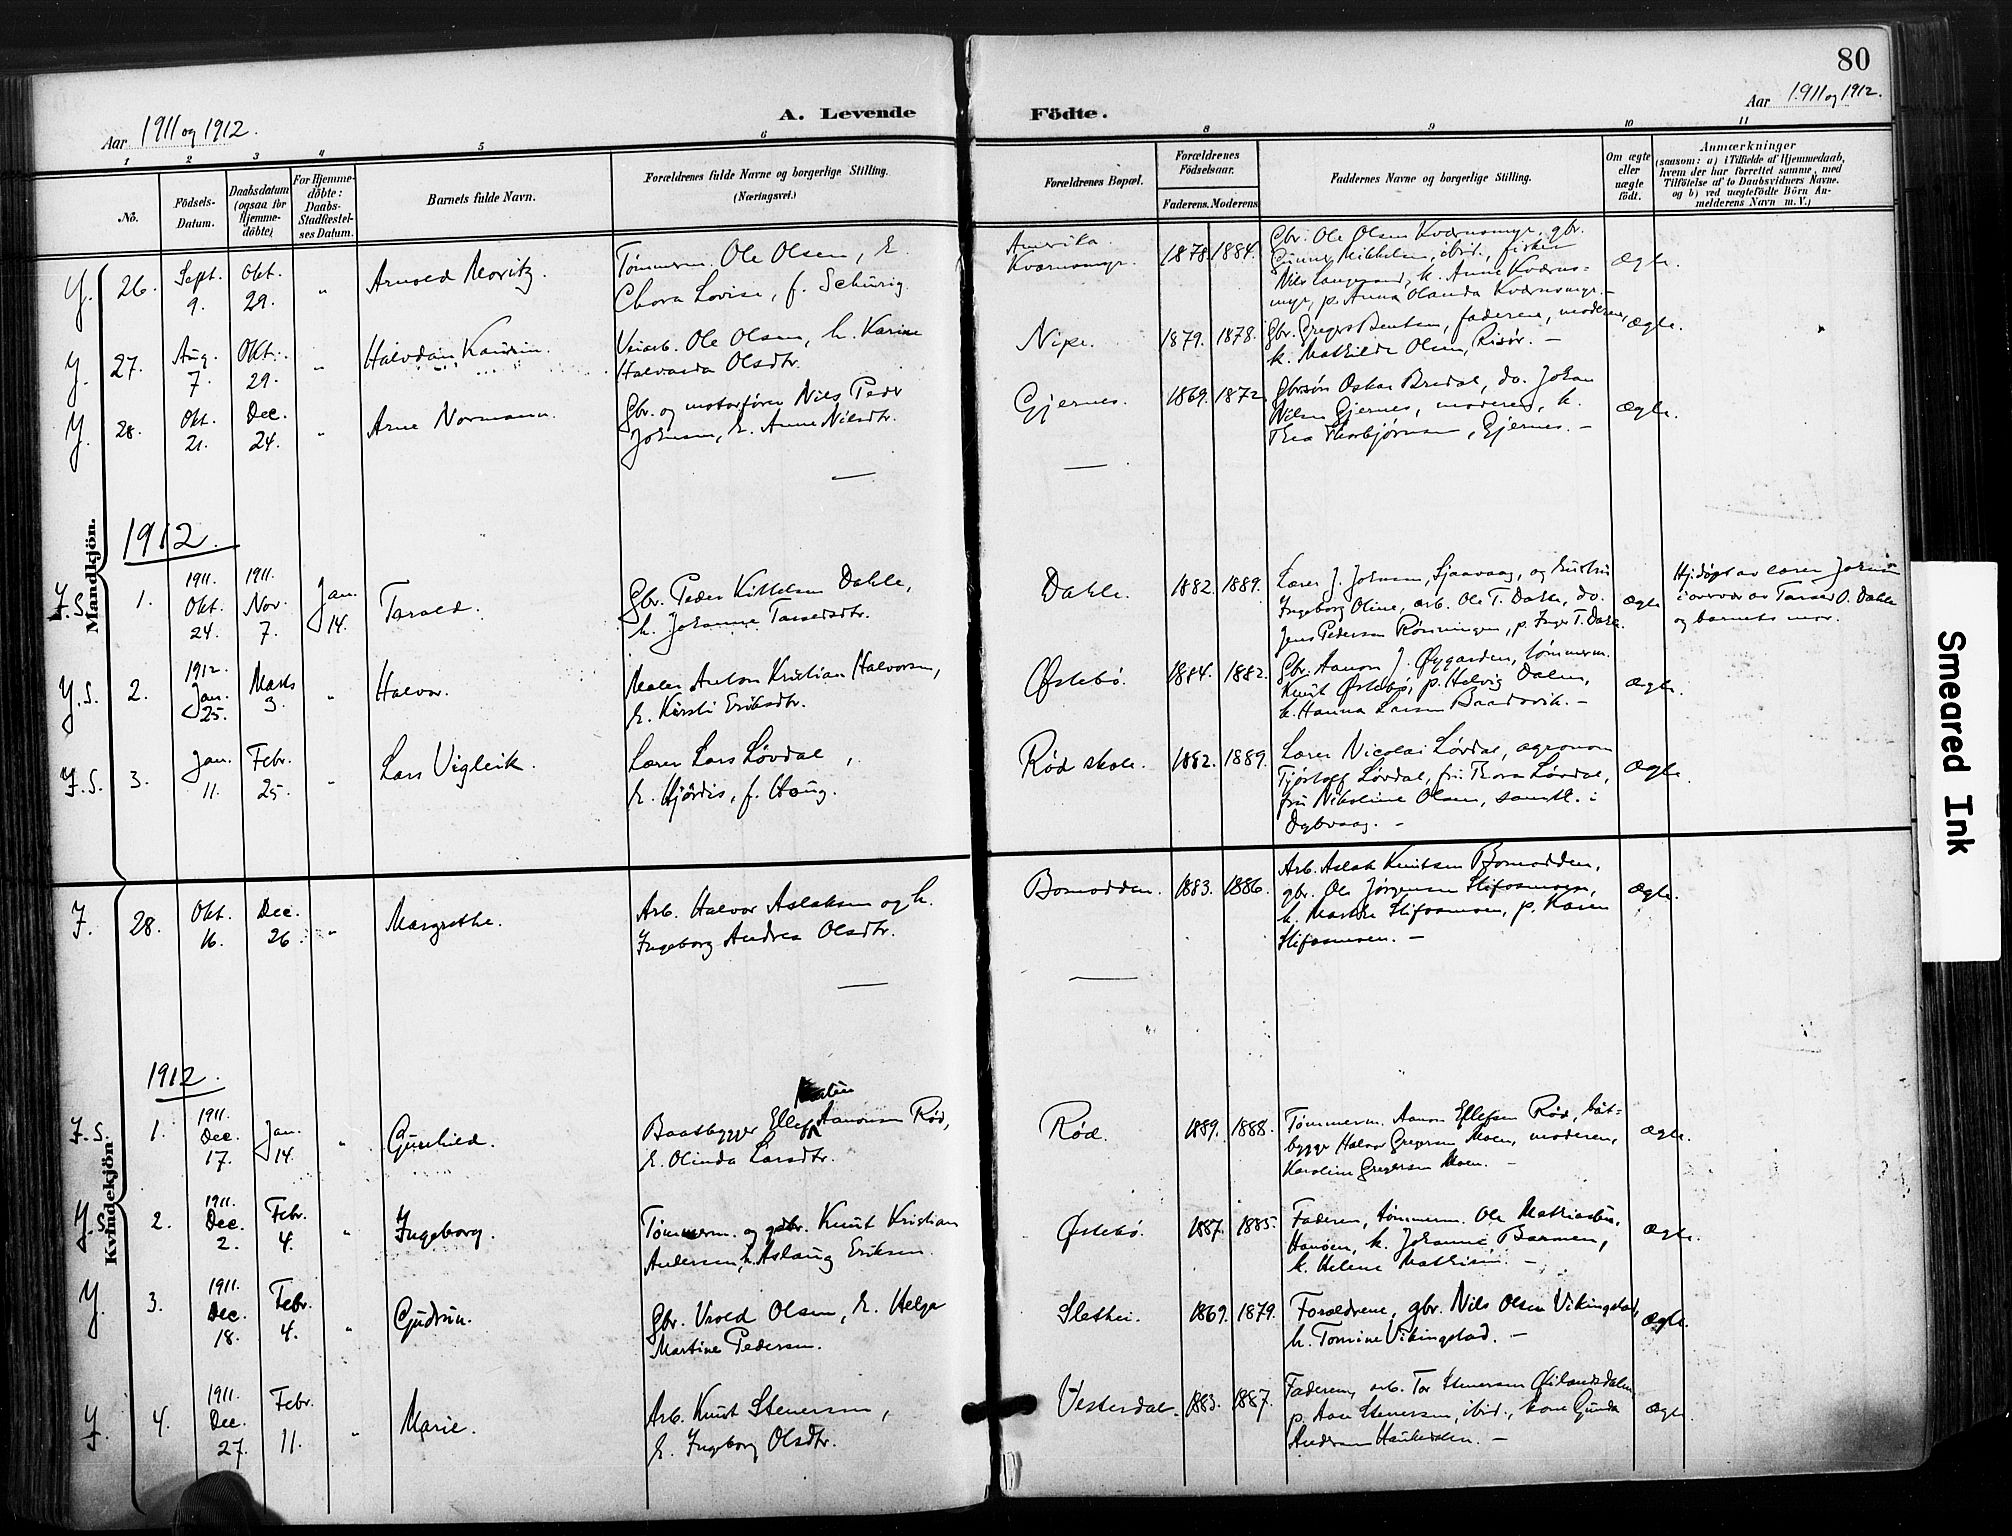 80
Aar 1911 og 1912.
A. Levende
Födte.
Aar 1911 og 1912.
1 2 3 4 5 6
8 9 10 11
No.
Födsels-
Datum.
Daabsdatum
(ogsaa for
Hjemme-
döbte)
For Hjemme-
döbte:
Daabs-
Stadfæstel-
ses Datum.
Barnets fulde Navn.
Forældrenes fulde Navne og borgerlige Stilling.
(Næringsvei.)
Forældrenes Bopæl.
Forældrenes
Födselsaar.
Faderens. Moderens
Faddernes Navne og borgerlige Stilling.
Om ægte
eller
uægte
födt.
Anmærkninger
(saasom: a) i Tilfælde af Hjemmedaab,
hvem der har forrettet samme, med
Tilföielse af to Daabsvidners Navne.
og b) ved uægtefödte Börn An-
melderens Navn m. V.)
Mandkjön.
Y. 26. Sept. 9. Okt. 29. " Arnold Moritz.
Tømmerm. Ole Olsen, k.
Chora Lovise, f. Schürig.
Amerika.
Kvernsmyr. 1878. 1884.
Gbr. Ole Olsen Kvernsmyr, gbr.
Gunner Mikkelsen, ibid., fisker
Nils Langesand, k. Anne Kverns-
myr, p. Anna Olanda Kvernsmyr. –
Ægte.
Y. 27. Aug. 7. Okt. 29. " Halvdan Kaurin.
Veiarb. Ole Olsen, k. Karine
Halvarda Olsdtr.
Nipe. 1879. 1878.
Gbr. Gregers Bentsen, faderen, moderen,
k. Mathilde Olsen, Risør. –
Ægte.
Y. 28. Okt. 21. Dec. 24. " Arne Normann.
Gbr. og motorfører Nils Peder
Johnsen, k. Anne Nilsdtr.
Gjernes. 1869. 1872.
Gbrsøn Oskar Bredal, do. Johan
Nilsen Gjernes, moderen, k.
Thea Thorbjørnsen, Gjernes. –
Ægte.
1912.
Y.S. 1. 1911. Okt. 24. 1911. Nov. 7. Jan. 14. Tarald.
Gbr. Peder Kittelsen Dahle,
k. Johanne Taraldsdtr.
Dahle. 1882. 1889.
Lærer J. Johnsen, Sjaavaag, og hustru
Ingeborg Oline, arb. Ole T. Dahle, do.
Jens Pedersen Rønningen, p. Inger T. Dahle.
Ægte
Hj.døpt av lærer Johnsen
i overvær av Tarald O. Dahle
og barnets mor.
Y.S. 2. 1912. Jan. 25. Marts 3. " Halvor.
Maler Anton Kristian Halvorsen,
k. Kirsti Eriksdtr.
Østebø. 1884. 1882.
Gbr. Aanon J. Øygarden, tømmerm.
Knut Østebø, p. Helvig Dalen,
k. Hanna Larsen Baadsvik. –
Ægte.
Y.S. 3. Jan. 11. Febr. 25. " Lars Vigleik.
Lærer Lars Løvdal,
k. Hjørdis, f. Haug.
Rød skole. 1882. 1889.
Lærer Nicolai Løvdal, agronom
Tjøstolf Løvdal, fru Thora Løvdal,
fru Nikoline Olsen, samtl. i
Dybvaag. –
Ægte.
Kvindekjön.
Y. 28. Okt. 16. Dec. 26. " Margrethe.
Arb. Halvor Aslaksen og k.
Ingeborg Andrea Olsdtr.
Bomodden. 1883. 1886.
Arb. Aslak Knutsen Bomodden,
gbr. Ole Jørgensen
k. p. Karen
Ægte.
1912.
Y.S. 1. 1911. Dec. 17. Jan. 14. " Gunhild.
Baatbygger Ellef Aanonsen Rød,
k. Olinda Larsdtr.
Rød. 1889. 1888.
Tømmerm. Aanon Ellefsen Rød, båt-
bygger Halvor Gregersen Moen, moderen,
Karoline Gregersen Moen. –
Ægte.
Y.S. 2. 1911. Dec. 2. Febr. 4. " Ingeborg.
Tømmerm. og gbr. Knut Kristian
Andersen, k. Aslaug Eriksen.
Østebø. 1887. 1885.
Faderen, tømmerm. Ole Mathiasen,
Hanøen, k. Johanne Barmen,
k. Helene Mathisen. –
Ægte.
Y. 3. 1911. Dec. 18. Febr. 4. " Gudrun.
Gbr. Vrold Olsen, k. Helga
Martine Pedersen.
Slethei. 1869. 1879.
Forældrene, gbr. Nils Olsen Vikingstad,
k. Tomine Vikingstad. –
Ægte.
Y. 4. 1911. Dec. 27. Febr. 11. " Marie.
Arb. Knut Stenersen,
k. Ingeborg Olsdtr.
Vesterdal. 1883. 1887.
Faderen, arb. Tor Stenersen Øilandsdalen
p. Aase Stenersen, ibid., kone Gunda
Andersen
Ægte.
Smeared Ink